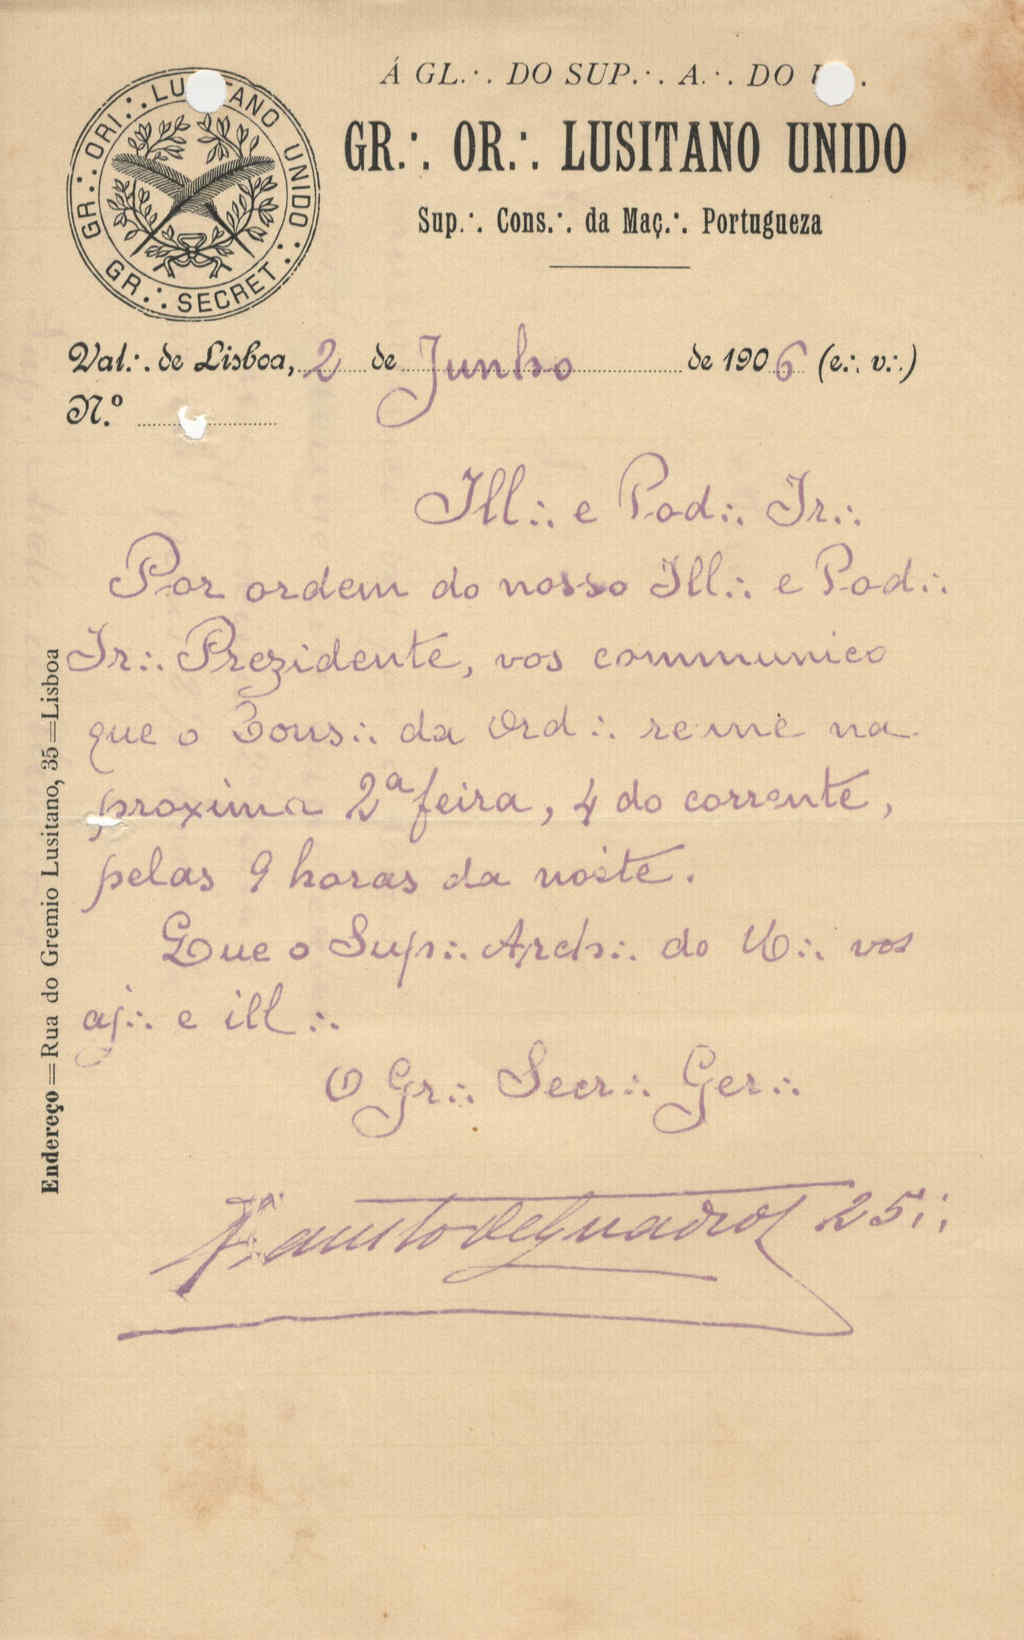 Á GL.∴ DO SUP.∴ A.∴ DO
GR.∴ OR.∴ LUSITANO UNIDO
Sup.∴ Cons.∴ da Maç.∴ Portugueza
GR.∴ ORI.∴ LUSITANO UNIDO.∴
GR.∴ SECRET.∴
Val.∴ de Lisboa, 2 de Junho de 1906 (e.∴ v.∴)
N.º
Ill∴ e Pod∴ Ir∴
Por ordem do nosso Ill∴ e Pod∴
Ir∴ Prezidente, vos communico
que o Cons∴ da Ord∴ reune na
proxima 2ª feira, 4 do corrente,
pelas 9 horas da noite.
Que o Sup∴ Arch∴ do U∴ vos
aj∴ e ill∴
O Gr∴ Secr∴ Ger∴
Fausto de Quadros 25∴
Endereço = Rua do Gremio Lusitano, 35 = Lisboa